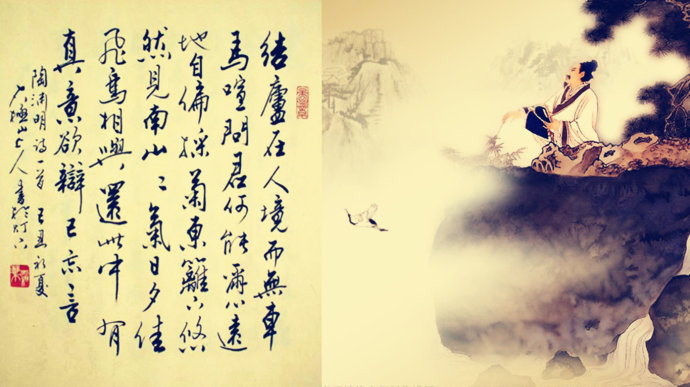 結廬在人境而無車
馬喧問君何能爾心遠
地自偏採菊東籬下悠
然見南山〻氣日夕佳
飛鳥相與還此中有
真意欲辯已忘言
陶渊明詩一首 己丑初夏
山上人書於灯下